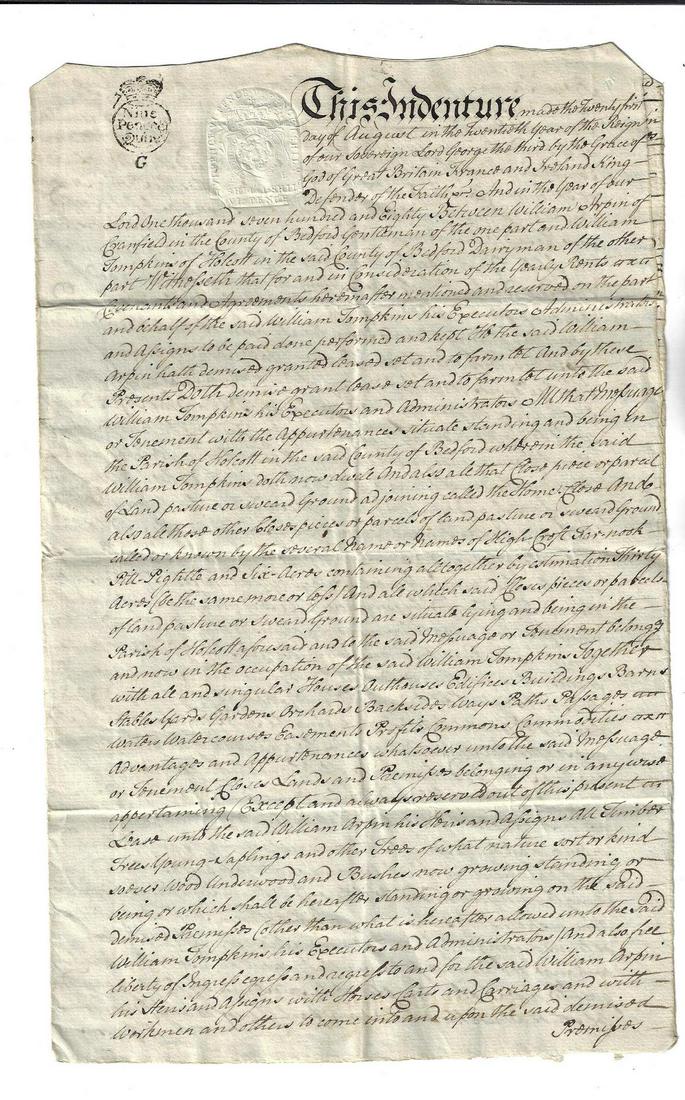 Nine
Pence
G
This Indenture made the Twenty first
day of August in the twentieth Year of the Reign
of our Sovereign Lord George the third by the Grace of
God of Great Britain France and Ireland King
Defender of the Faith &c. And in the Year of our
Lord One thousand seven hundred and Eighty Between William Arpin of
Cranfield in the County of Bedford Gentleman of the one part and William
Tompkins of Holcott in the said County of Bedford Dairyman of the other
part Witnesseth that for and in Consideration of the Yearly Rents
Covenants and Agreements hereinafter mentioned and reserved on the part
and behalf of the said William Tompkins his Executors Administrators
and Assigns to be paid done performed and kept He the said William
Arpin hath demised granted leased set and to farm let And by these
Presents Doth demise grant lease set and to farm let unto the said
William Tompkins his Executors and Administrators All that Messuage
or Tenement with the Appurtenances situate standing and being in
the Parish of Holcott in the said County of Bedford wherein the said
William Tompkins doth now dwell And also all that Close piece or parcel
of Land pasture or sweard Ground adjoining called the Home Close And
also all those other Closes pieces or parcels of land pasture or sweard Ground
called or known by the several Name or Names of High Croft Far-nook
Pill-Pightle and Six-Acres containing all together by estimation Thirty
Acres (be the same more or less) And all which said Closes pieces or parcels
of land pasture or sweard Ground are situate lying and being in the
Parish of Holcott aforesaid and to the said Messuage or Tenement belong
and now in the occupation of the said William Tompkins Together
with all and singular Houses Outhouses Edifices Buildings Barns
Stables Yards Gardens Orchards Backsides Ways Paths Passages
Waters Watercourses Easements Profits Commons Commodities
Advantages and Appurtenances whatsoever unto the said Messuage
or Tenement Closes Lands and Premisses belonging or in any wise
appertaining (Except and always reserved out of this present
Lease unto the said William Arpin his Heirs and Assigns All Timber
Trees Young-Saplings and other Trees of what nature sort or kind
soever Wood Underwood and Bushes now growing standing or
being or which shall be hereafter standing or growing on the said
demised Premisses (other than what is hereafter allowed unto the said
William Tompkins his Executors and Administrators) And also free
liberty of Ingress egress and regress to and for the said William Arpin
his Heirs and Assigns with Horses Carts and Carriages and with
Workmen and others to come into and upon the said demised
Premisses